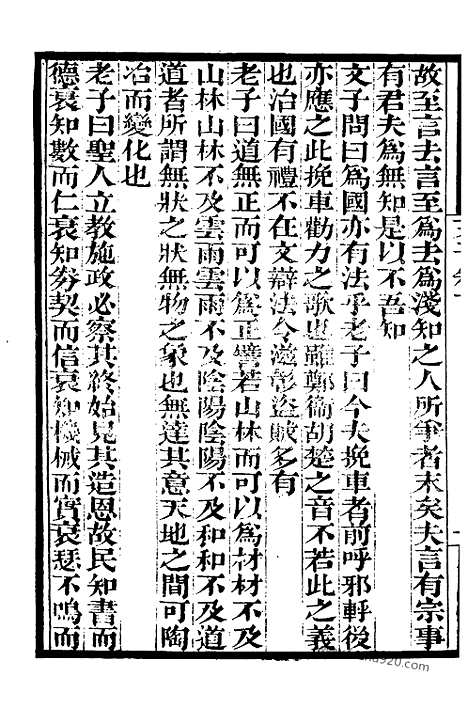 故至言去言至爲去爲淺知之人所爭者末矣夫言有宗事
有君夫爲無知是以不吾知
文子問曰爲國亦有法乎老子曰今夫挽車者前呼邪軤後
亦應之此挽車勸力之歌也雖鄭衞胡楚之音不若此之義
也治國有禮不在文辯法令滋彰盜賊多有
老子曰道無正而可以爲正譬若山林而可以爲材材不及
山林山林不及雲雨雲雨不及陰陽陰陽不及和和不及道
道者所謂無狀之狀無物之象也無達其意天地之間可陶
冶而變化也
老子曰聖人立教施政必察其終始見其造恩故民知書而
德衰知數而仁衰知券契而信衰知機械而實衰瑟不鳴而